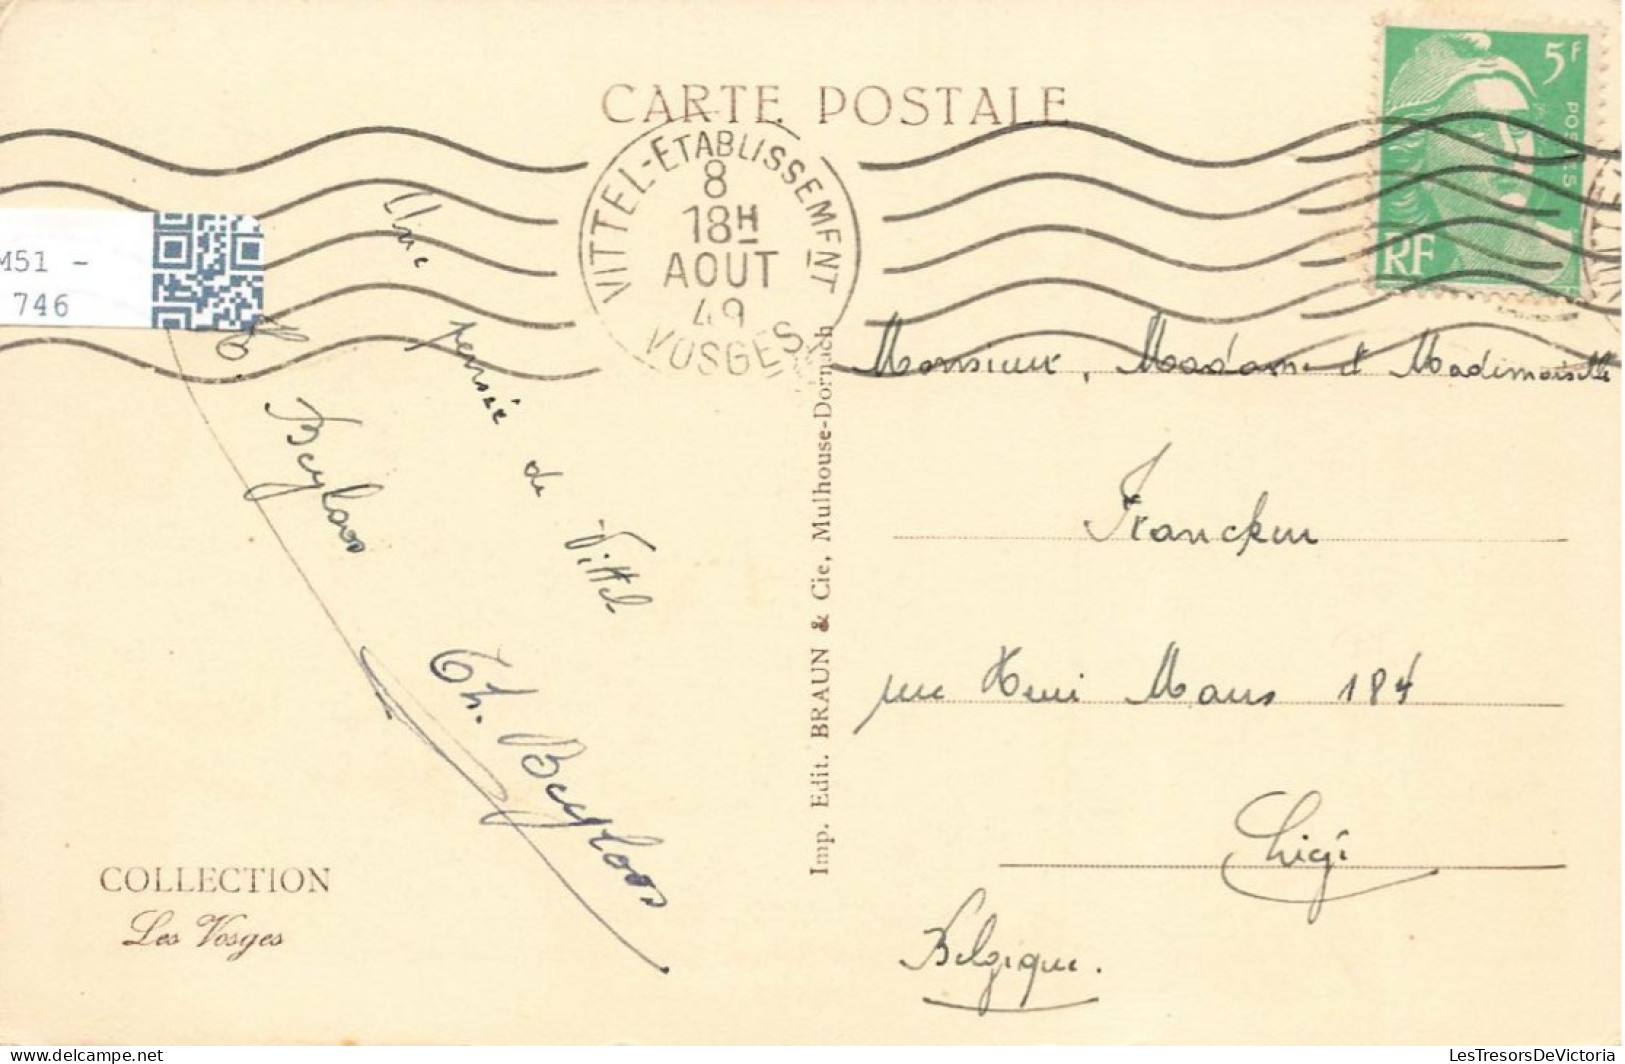 CARTE POSTALE
5F
POSTES
RF
VITTEL-ETABLISSEMENT
8
18H
AOUT
49
VOSGES
M51 -
746
Une
pensée
de
Vittel
Beyloos
Th. Beyloos
Monsieur, Madame et Mademoiselle
Francken
rue Henri Maus 184
Liège
Belgique.
Imp. Edit. BRAUN & Cie, Mulhouse-Dornach
COLLECTION
Les Vosges
LesTresorsDeVictoria